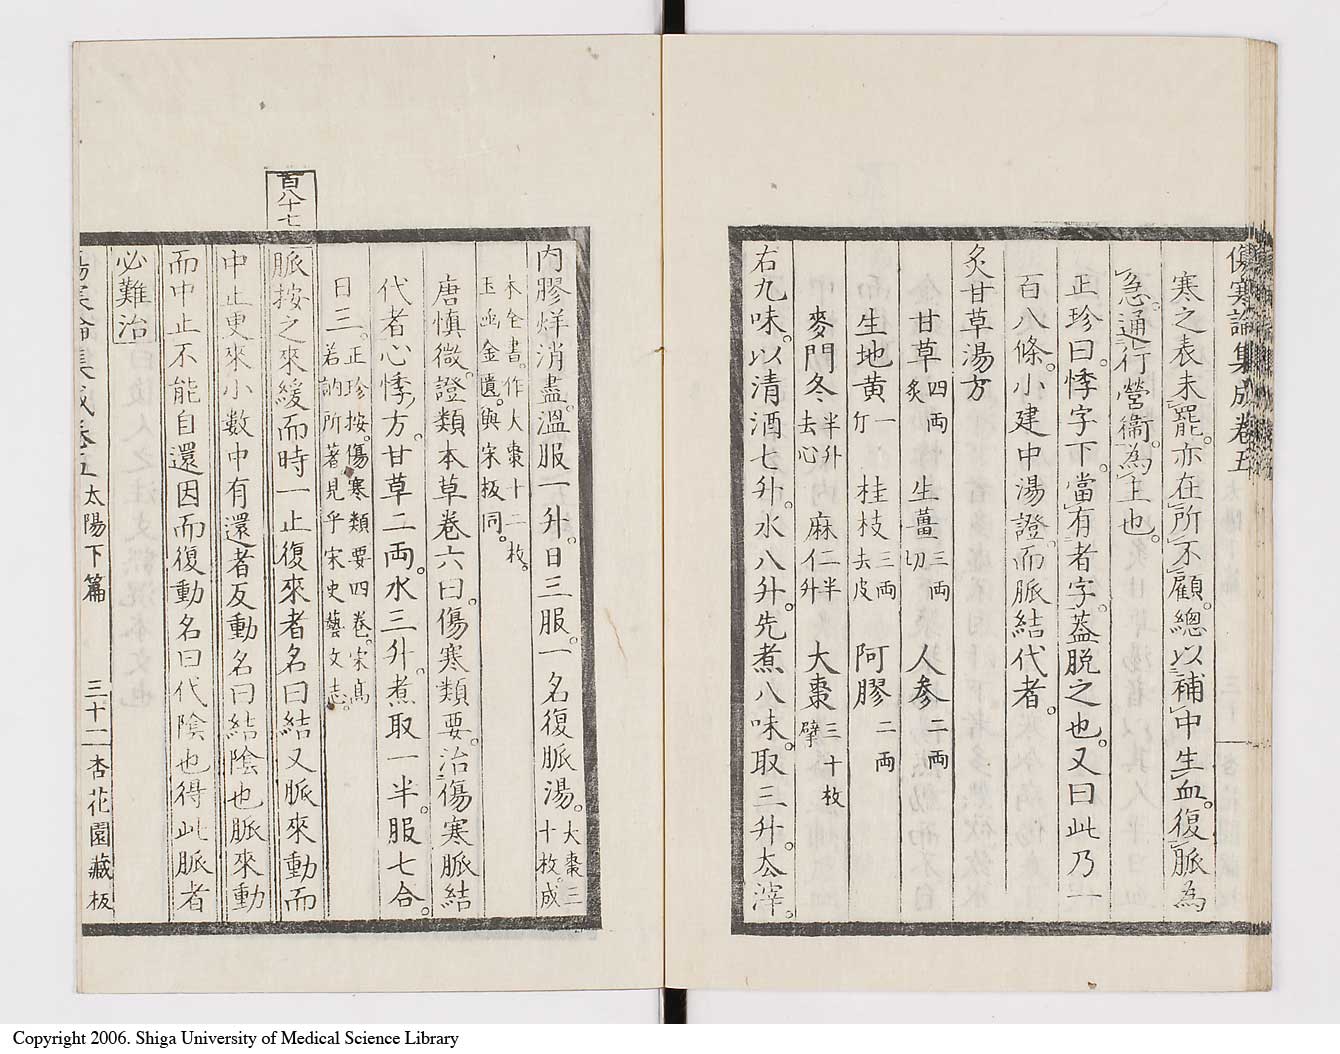 傷寒論集成卷五
寒之表未罷。亦在所不顧。總以補中生血。復脈為
急。通行營衞。為主也。
正珍曰。悸字下。當有者字。蓋脱之也。又曰此乃一
百八條。小建中湯證。而脈結代者。
炙甘草湯方
甘草四兩炙 生薑三兩切 人參二兩
生地黃一斤 桂枝三兩去皮 阿膠二兩
麥門冬半升去心 麻仁半升 大棗三十枚擘
右九味。以清酒七升。水八升。先煮八味取三升。去滓。
内膠烊消盡。溫服一升。日三服。一名復脈湯。大棗三十枚。成
本全書。作大棗十二枚。
玉函金遺。與宋板同。
唐慎微。證類本草卷六曰。傷寒類要。治傷寒脈結
代者心悸方。甘草二兩。水三升。煮取一半。服七合。
日三。正珍按。傷寒類要四卷。宋高若訥所著見乎宋史藝文志。
百八十七
脈按之來緩而時一止復來者名曰結又脈來動而
中止更來小數中有還者反動名曰結陰也脈來動
而中止不能自還因而復動名曰代陰也得此脈者
必難治
傷寒論集成卷五 太陽下篇 三十二 杏花園藏板
Copyright 2006. Shiga University of Medical Science Library